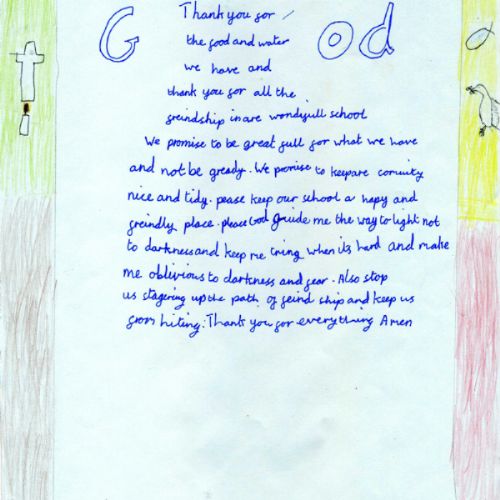 God
Thank you for
the food and water
we have and
thank you for all the
freindship in are wondyfull school
We promise to be great full for what we have
and not be gready. We promise to keep are comunity
nice and tidy. pease keep our school a hapy and
freindly place. please God guide me the way to light not
to darkness and keep me tring when its hard and make
me oblivious to darkness and fear. Also stop
us stagering up the path of freind ship and keep us
from hiting. Thank you for everything Amen